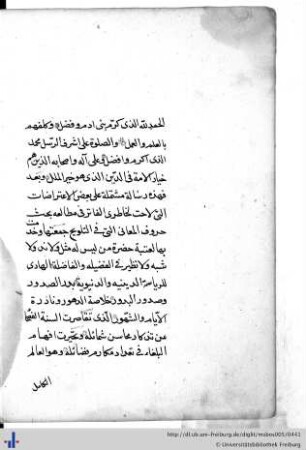 الحمد لله الذي كرم بني ادم وفضل وكلفهم
بالعلم والعمل والصلوة على اشرف الرسل محمد
الذي اكرم وافضل وعلى آله واصحابه الذين هم
خيار الامة في الدين الذي هو خير الملل وبعد
فهذه رسالة مشتملة على بعض الاعتراضات
التي لاحت لخاطري الفاتر في مطالعه بحث
حروف المعاني التي في التلويح جمعتها وخدمت
بها لعتبة حضرة من ليس له مثل ولا ند ولا
شبه ولا نظير في الفضيله والفاضلة الهادي
للرياسة الدينيه والدنيوية بدر الصدور
وصدور البدور خلاصة الدهور ونادرة
الايام والشهور الذي تقاصرت السنة الفصحا
من تذكار محاسن شمائله وتحيرت افهام
البلغاء في تعداد مكارم فضائله وهو العالم
http://dl.ub.uni-freiburg.de/diglit/
© Universitätsbibliothek Freiburg